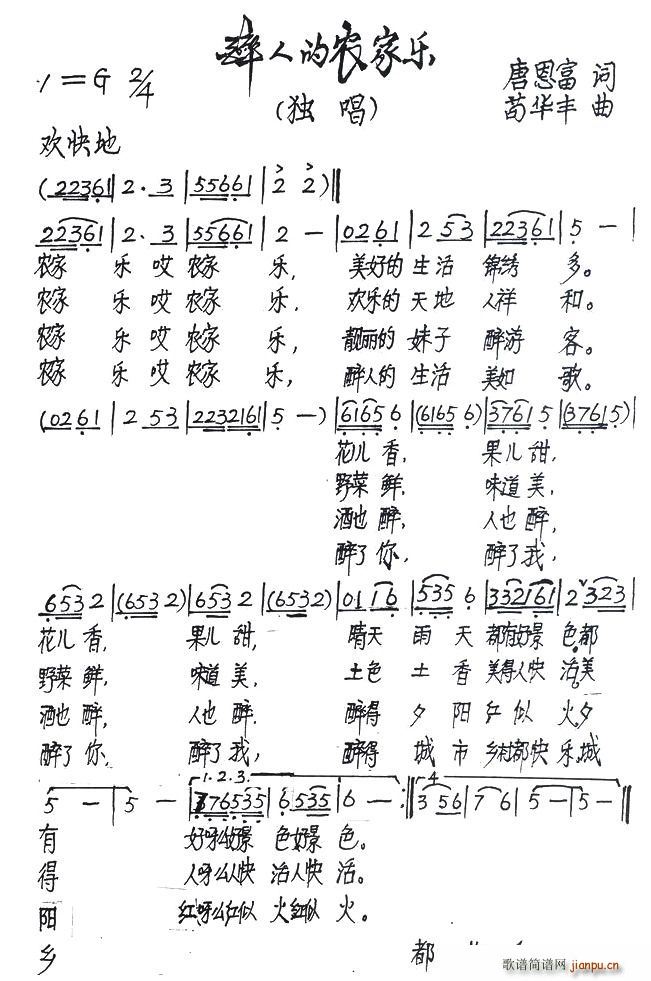 醉人的农家乐
1=G 2/4
(独 唱)
唐恩富 词
苟华丰 曲
欢快地
(22361|2·3|55661|2 2)‖
22361|2·3|55661|2 —|0261|2 53|22361|5 —|
农家 乐 哎 农家 乐, 美好的 生活 锦绣 多。
农家 乐 哎 农家 乐, 欢乐的 天地 人祥 和。
农家 乐 哎 农家 乐, 靓丽的 妹子 醉游 客。
农家 乐 哎 农家 乐, 醉人的 生活 美如 歌。
(0261|2 53|2232161|5 —)|6165 6|(6165 6)|3761 5|(3761 5)|
花儿 香, 果儿 甜,
野菜 鲜, 味道 美,
酒也 醉, 人也 醉,
醉了 你, 醉了 我,
653 2|(653 2)|653 2|(653 2)|011 6|535 6|332161|2 323|
花儿 香, 果儿 甜, 晴天 雨 天 都有好景 色都
野菜 鲜, 味道 美, 土色 土 香 美得人快 活美
酒也 醉, 人也 醉. 醉得 夕 阳 红 似 火夕
醉了 你, 醉了 我, 醉得 城 市 乡村都快 乐,城
1.2.3. 4
5 —|5 —|376535|6 535|6 —:‖3 56|7 6|5 —|5 —‖
有 好呀么好景 色好景 色。
得 人呀么人快 活人快 活。
阳 红呀么红似 火红似 火。
乡 都
歌谱简谱网
jianpu.cn